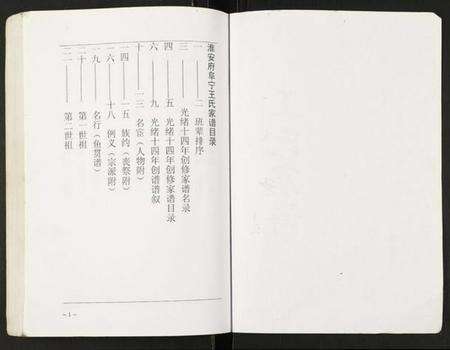 淮安府阜宁王氏家谱目录
一——二 班辈排序
三——— 光绪十四年创修家谱名录
四——五 光绪十四年创修家谱目录
六——九 光绪十四年创谱谱叙
十——一三 名宦（人物附）
一四——一五 族约（丧祭附）
一六——一八 例义（宗派附）
一九——— 名行（鱼贯谱）
二十——— 第一世祖
二一——— 第二世祖
－1－